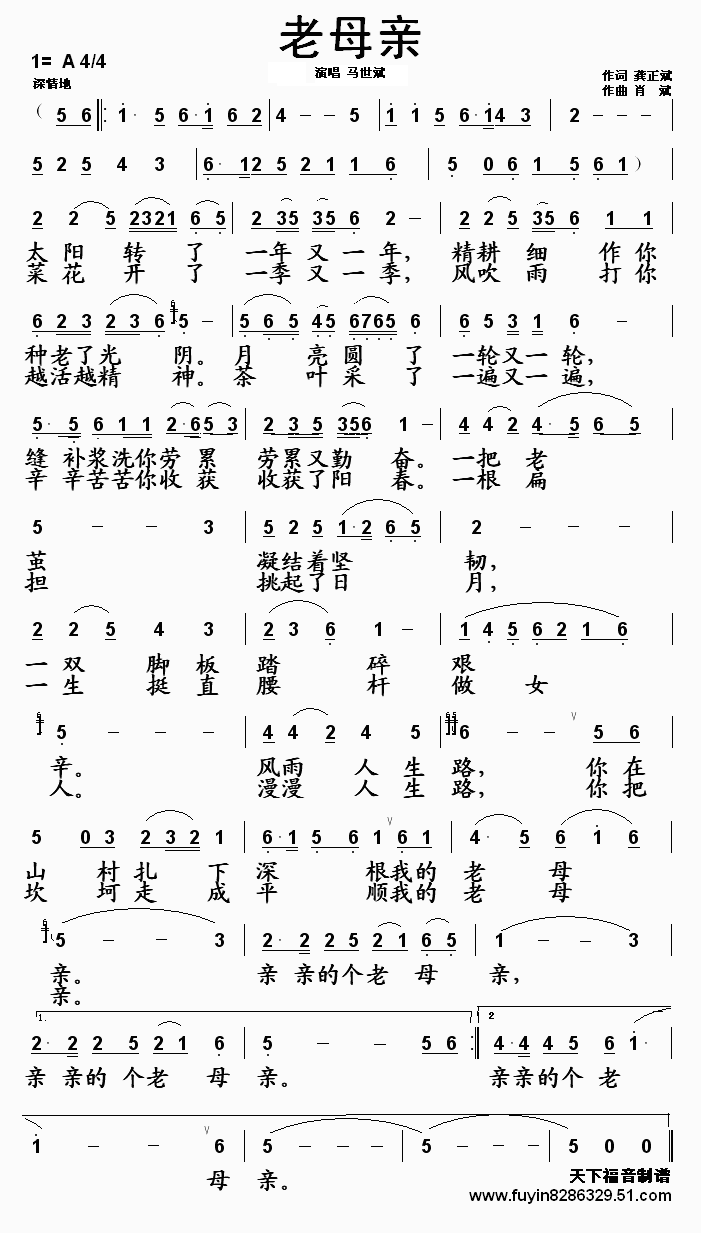 老母亲
1= A 4/4
演唱 马世斌
作词 龚正斌
深情地
作曲 肖 斌
( 5 6 ‖: 1· 5 6·1 6 2 | 4 - - 5 | 1 1 5 6·1 4 3 | 2 - - - |
5 2 5 4 3 | 6·1 2 5 2 1 1 6 | 5 0 6 1 5 6 1 )
2 2 5 2321 6 5 | 2 35 35 6 2 - | 2 2 5 35 6 1 1 |
太 阳 转 了 一年 又 一 年, 精耕 细 作 你
菜 花 开 了 一季 又 一 季, 风吹 雨 打 你
6 2 3 2 3 6 5 - | 5 6 5 45 6765 5 2 | 6 5 3 1 6 - |
种老了光 阴。月 亮 圆 了 一轮又一轮,
越活越精 神。茶 叶 采 了 一遍又一遍,
5· 5 6 1 1 2·6 5 3 | 2 3 5 356 1 - | 4 4 2 4· 5 6 5 |
缝 补浆洗你劳 累 劳累又勤 奋。一把 老
辛 辛苦苦你收 获 收获了阳 春。一根 扁
5 - - 3 | 5 2 5 1·2 6 5 | 2 - - - |
茧 凝结着坚 韧,
担 挑起了日 月,
2 2 5 4 3 | 2 3 6 1 - | 1 4 5 6 2 1 6 |
一 双 脚 板 踏 碎 艰
一 生 挺 直 腰 杆 做 女
5 - - - | 4 4 2 4 5 | 6 - - 5 6 |
辛。 风雨 人 生 路, 你 在
人。 漫漫 人 生 路, 你 把
5 0 3 2 3 2 1 | 6·1 5 6 1 ∨ 6 1 | 4· 5 6 1 6 |
山 村扎 下 深 根我的 老 母
坎 坷走 成 平 顺我的 老 母
5 - - 3 | 2· 2 2 5 2 1 6 5 | 1 - - 3 |
亲。 亲 亲的个老 母 亲,
亲。
1. 2
2· 2 2 5 2 1 6 | 5 - - 5 6 :‖ 4·4 4 5 6 1· |
亲 亲的 个老 母 亲。 亲亲的个 老
1 - - ∨ 6 | 5 - - - | 5 - - - | 5 0 0 ‖
母 亲。
天下福音制谱
www.fuyin8286329.51.com